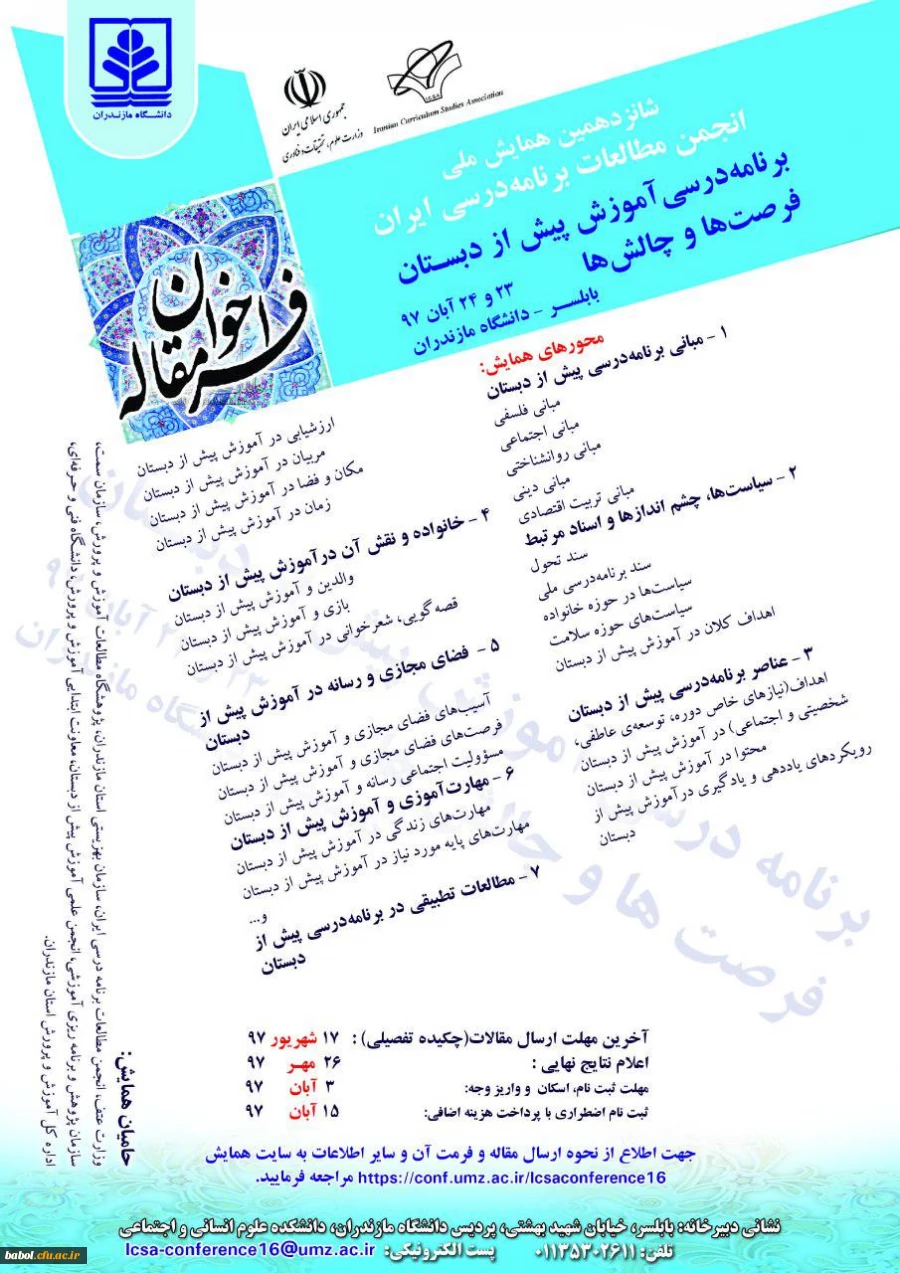 دانشگاه مازندران
جمهوری اسلامی ایران
وزارت علوم، تحقیقات و فناوری
Iranian Curriculum Studies Association
شانزدهمین همایش ملی
انجمن مطالعات برنامه‌درسی ایران
برنامه‌درسی آموزش پیش از دبستان
فرصت‌ها و چالش‌ها
۲۳ و ۲۴ آبان ۹۷
بابلسر - دانشگاه مازندران
فراخوان
مقاله
محورهای همایش:
۱ - مبانی برنامه‌درسی پیش از دبستان
مبانی فلسفی
مبانی اجتماعی
مبانی روانشناختی
مبانی دینی
مبانی تربیت اقتصادی
۲ - سیاست‌ها، چشم اندازها و اسناد مرتبط
سند تحول
سند برنامه‌درسی ملی
سیاست‌ها در حوزه خانواده
سیاست‌های حوزه سلامت
اهداف کلان در آموزش پیش از دبستان
۳ - عناصر برنامه‌درسی پیش از دبستان
اهداف(نیازهای خاص دوره، توسعه‌ی عاطفی،
شخصیتی و اجتماعی) در آموزش پیش از دبستان
محتوا در آموزش پیش از دبستان
رویکردهای یاددهی و یادگیری درآموزش پیش از
دبستان
ارزشیابی در آموزش پیش از دبستان
مربیان در آموزش پیش از دبستان
مکان و فضا در آموزش پیش از دبستان
زمان در آموزش پیش از دبستان
۴ - خانواده و نقش آن درآموزش پیش از دبستان
والدین و آموزش پیش از دبستان
بازی و آموزش پیش از دبستان
قصه‌گویی، شعرخوانی در آموزش پیش از دبستان
۵ - فضای مجازی و رسانه در آموزش پیش از
دبستان
آسیب‌های فضای مجازی و آموزش پیش از دبستان
فرصت‌های فضای مجازی و آموزش پیش از دبستان
مسؤولیت اجتماعی رسانه و آموزش پیش از دبستان
۶ - مهارت‌آموزی و آموزش پیش از دبستان
مهارت‌های زندگی در آموزش پیش از دبستان
مهارت‌های پایه مورد نیاز در آموزش پیش از دبستان
و...
۷ - مطالعات تطبیقی در برنامه‌درسی پیش از
دبستان
برنامه درسی آموزش پیش از دبستان
فرصت ها و چالش ها
حامیان همایش:
وزارت عتف، انجمن مطالعات برنامه درسی ایران، سازمان بهزیستی استان مازندران، پژوهشگاه مطالعات آموزش و پرورش، سازمان سمت،
سازمان پژوهش و برنامه ریزی آموزشی، انجمن علمی آموزش پیش از دبستان، معاونت ابتدایی آموزش و پرورش، دانشگاه فنی و حرفه‌ای،
اداره کل آموزش و پرورش استان مازندران.
آخرین مهلت ارسال مقالات(چکیده تفصیلی) : ۱۷ شهریور ۹۷
اعلام نتایج نهایی : ۲۶ مهر ۹۷
مهلت ثبت نام، اسکان و واریز وجه: ۳ آبان ۹۷
ثبت نام اضطراری با پرداخت هزینه اضافی: ۱۵ آبان ۹۷
جهت اطلاع از نحوه ارسال مقاله و فرمت آن و سایر اطلاعات به سایت همایش
https://conf.umz.ac.ir/lcsaconference16 مراجعه فرمایید.
نشانی دبیرخانه: بابلسر، خیابان شهید بهشتی، پردیس دانشگاه مازندران، دانشکده علوم انسانی و اجتماعی
تلفن: ۰۱۱۳۵۳۰۲۶۱۱ پست الکترونیکی: lcsa-conference16@umz.ac.ir
babol.cfu.ac.ir